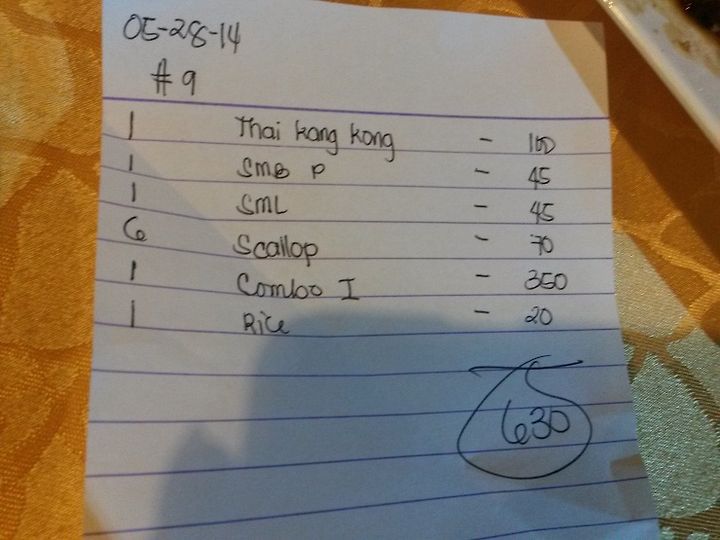 05-28-14
# 9
1 Thai kang kong - 100
1 SMB P - 45
1 SML - 45
6 Scallop - 70
1 Combo I - 350
1 Rice - 20
630